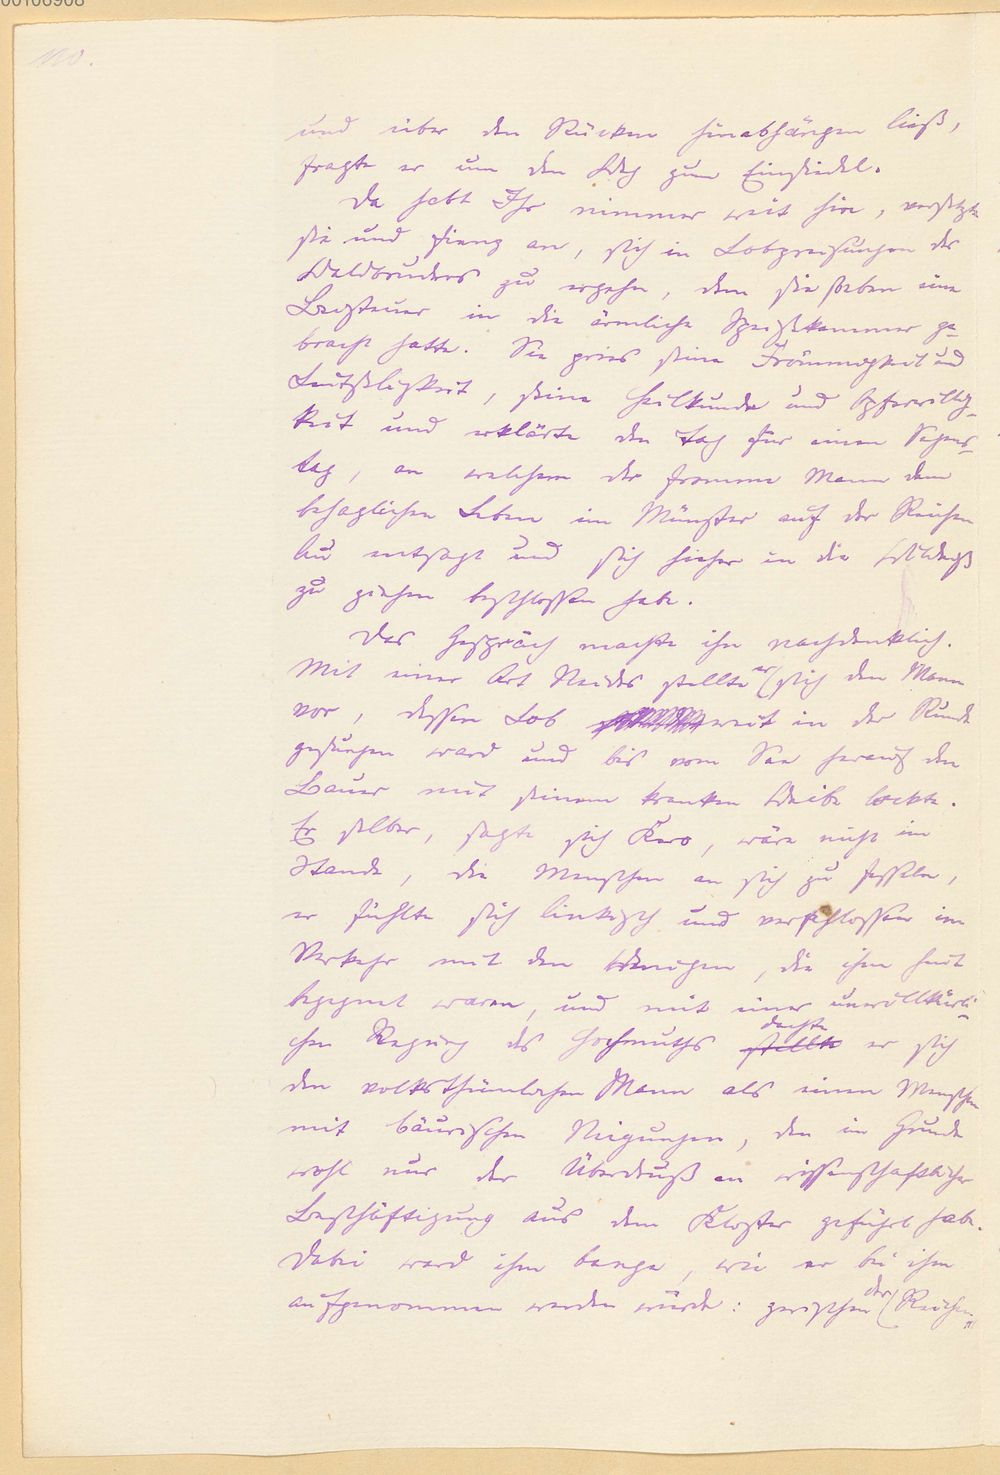 110.
und über den Rücken hinabhängen ließ,
fragte er um den Weg zum Einsiedel.
Da habt Ihr nimmer weit hin, versetzte
sie und fieng an, sich in Lobpreisungen des
Waldbruders zu ergehn, dem sie soeben eine
Beisteuer in die ärmliche Speisekammer ge-
bracht hatte. Sie pries seine Frömmigkeit und
Leutseligkeit, seine Heilkunde und Opferwillig-
keit und erklärte den Tag für einen Segens-
tag, an welchem der fromme Mann dem
behaglichen Leben im Münster auf der Reichen
Au entsagt und sich hieher in die Wildniß
zu ziehen beschlossen habe.
Das Gespräch machte ihn nachdenklich.
Mit einer Art Neides stellte er sich den Mann
vor, dessen Lob weit in der Runde
gesungen ward und bis vom See herauf den
Bauer mit seinem kranken Weibe lockte.
Er selber, sagte sich Kero, wäre nicht im
Stande, die Menschen an sich zu fesseln,
er fühlte sich linkisch und verschlossen im
Verkehr mit den Wenigen, die ihm heut
begegnet waren, und mit einer unwillkürli-
chen Regung des Hochmuths stellte dachte er sich
den volksthümlichen Mann als einen Menschen
mit bäurischen Neigungen, den im Grunde
wohl nur der Überdruß an wissenschaftlicher
Beschäftigung aus dem Kloster geführt habe.
Dabei ward ihm bange, wie er bei ihm
aufgenommen werden würde: zwischen der Reichen-